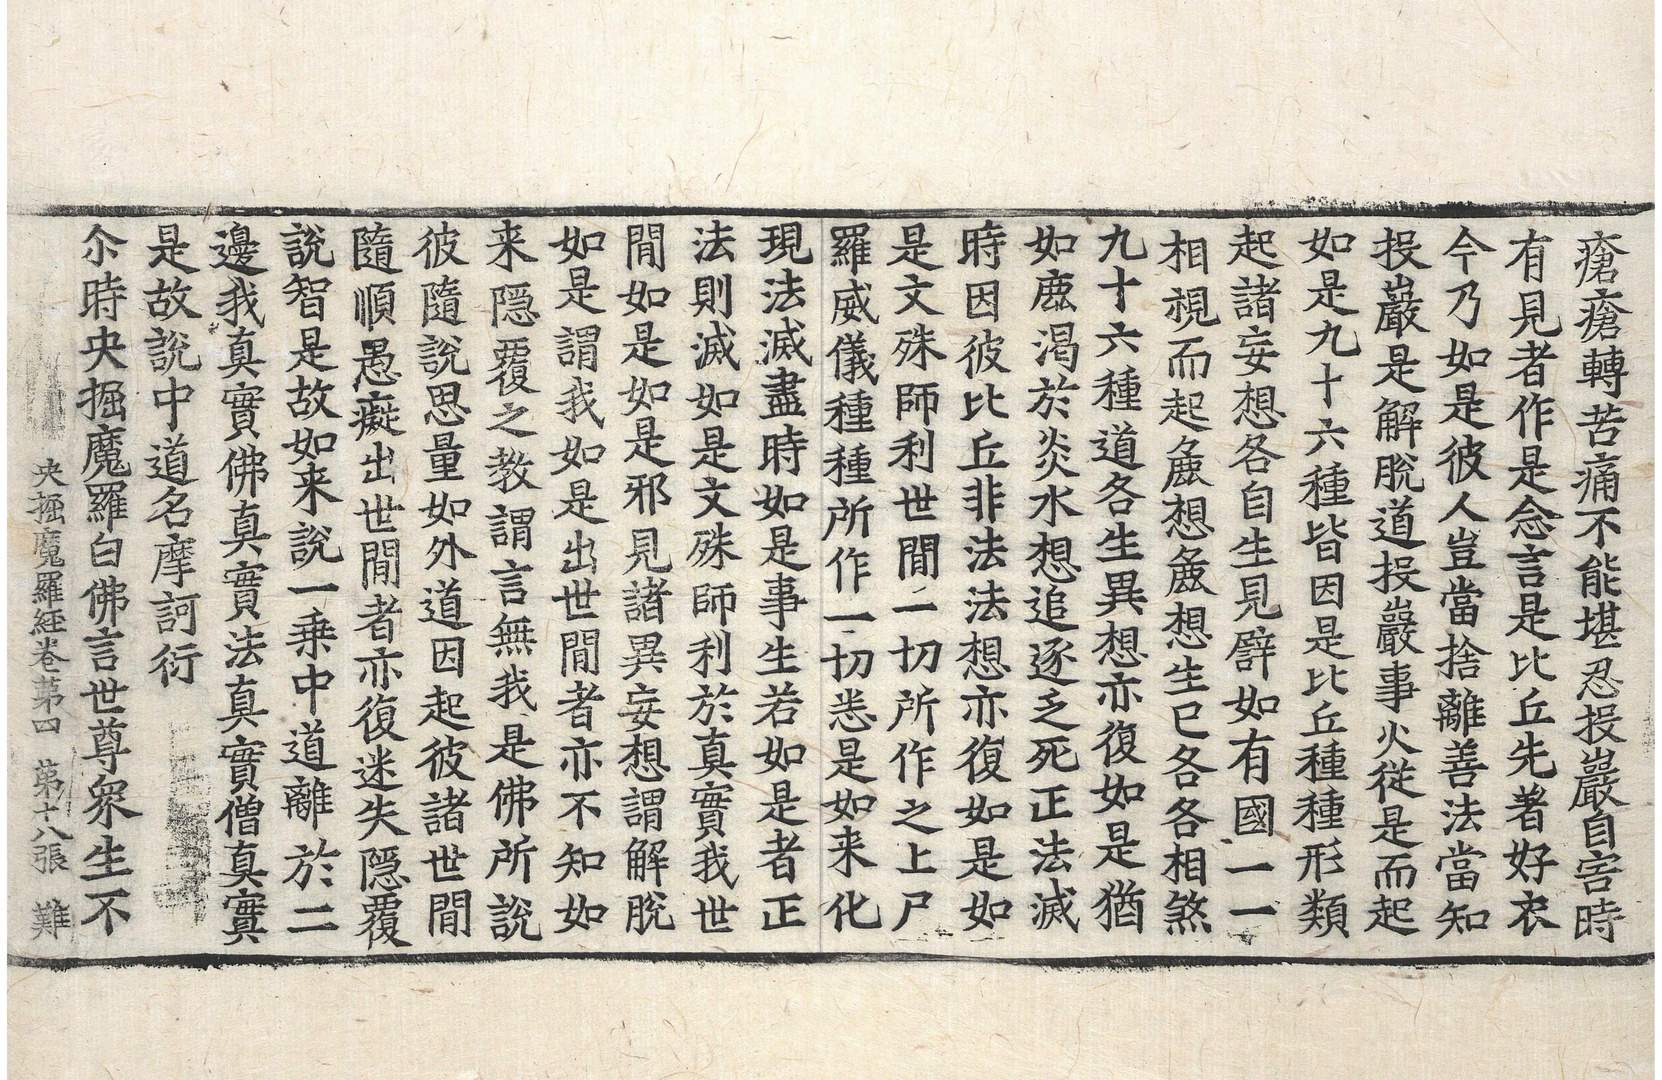 瘡瘡轉苦痛不能堪忍投巖自害時
有見者作是念言是比丘先著好衣
今乃如是彼人豈當捨離善法當知
投巖是解脫道投巖事火從是而起
如是九十六種皆因是比丘種種形類
起諸妄想各自生見譬如有國一一
相視而起麁想麁想生已各各相煞
九十六種道各生異想亦復如是猶
如鹿渴於炎水想追逐乏死正法滅
時因彼比丘非法法想亦復如是如
是文殊師利世間一切所作之上尸
羅威儀種種所作一切悉是如来化
現法滅盡時如是事生若如是者正
法則滅如是文殊師利於真實我世
間如是如是邪見諸異妄想謂解脫
如是謂我如是出世間者亦不知如
来隱覆之教謂言無我是佛所說
彼隨說思量如外道因起彼諸世間
隨順愚癡出世間者亦復迷失隱覆
說智是故如来說一乗中道離於二
邊我真實佛真實法真實僧真實
是故說中道名摩訶衍
尒時央掘魔羅白佛言世尊衆生不
央掘魔羅経卷苐四 苐十八張 難